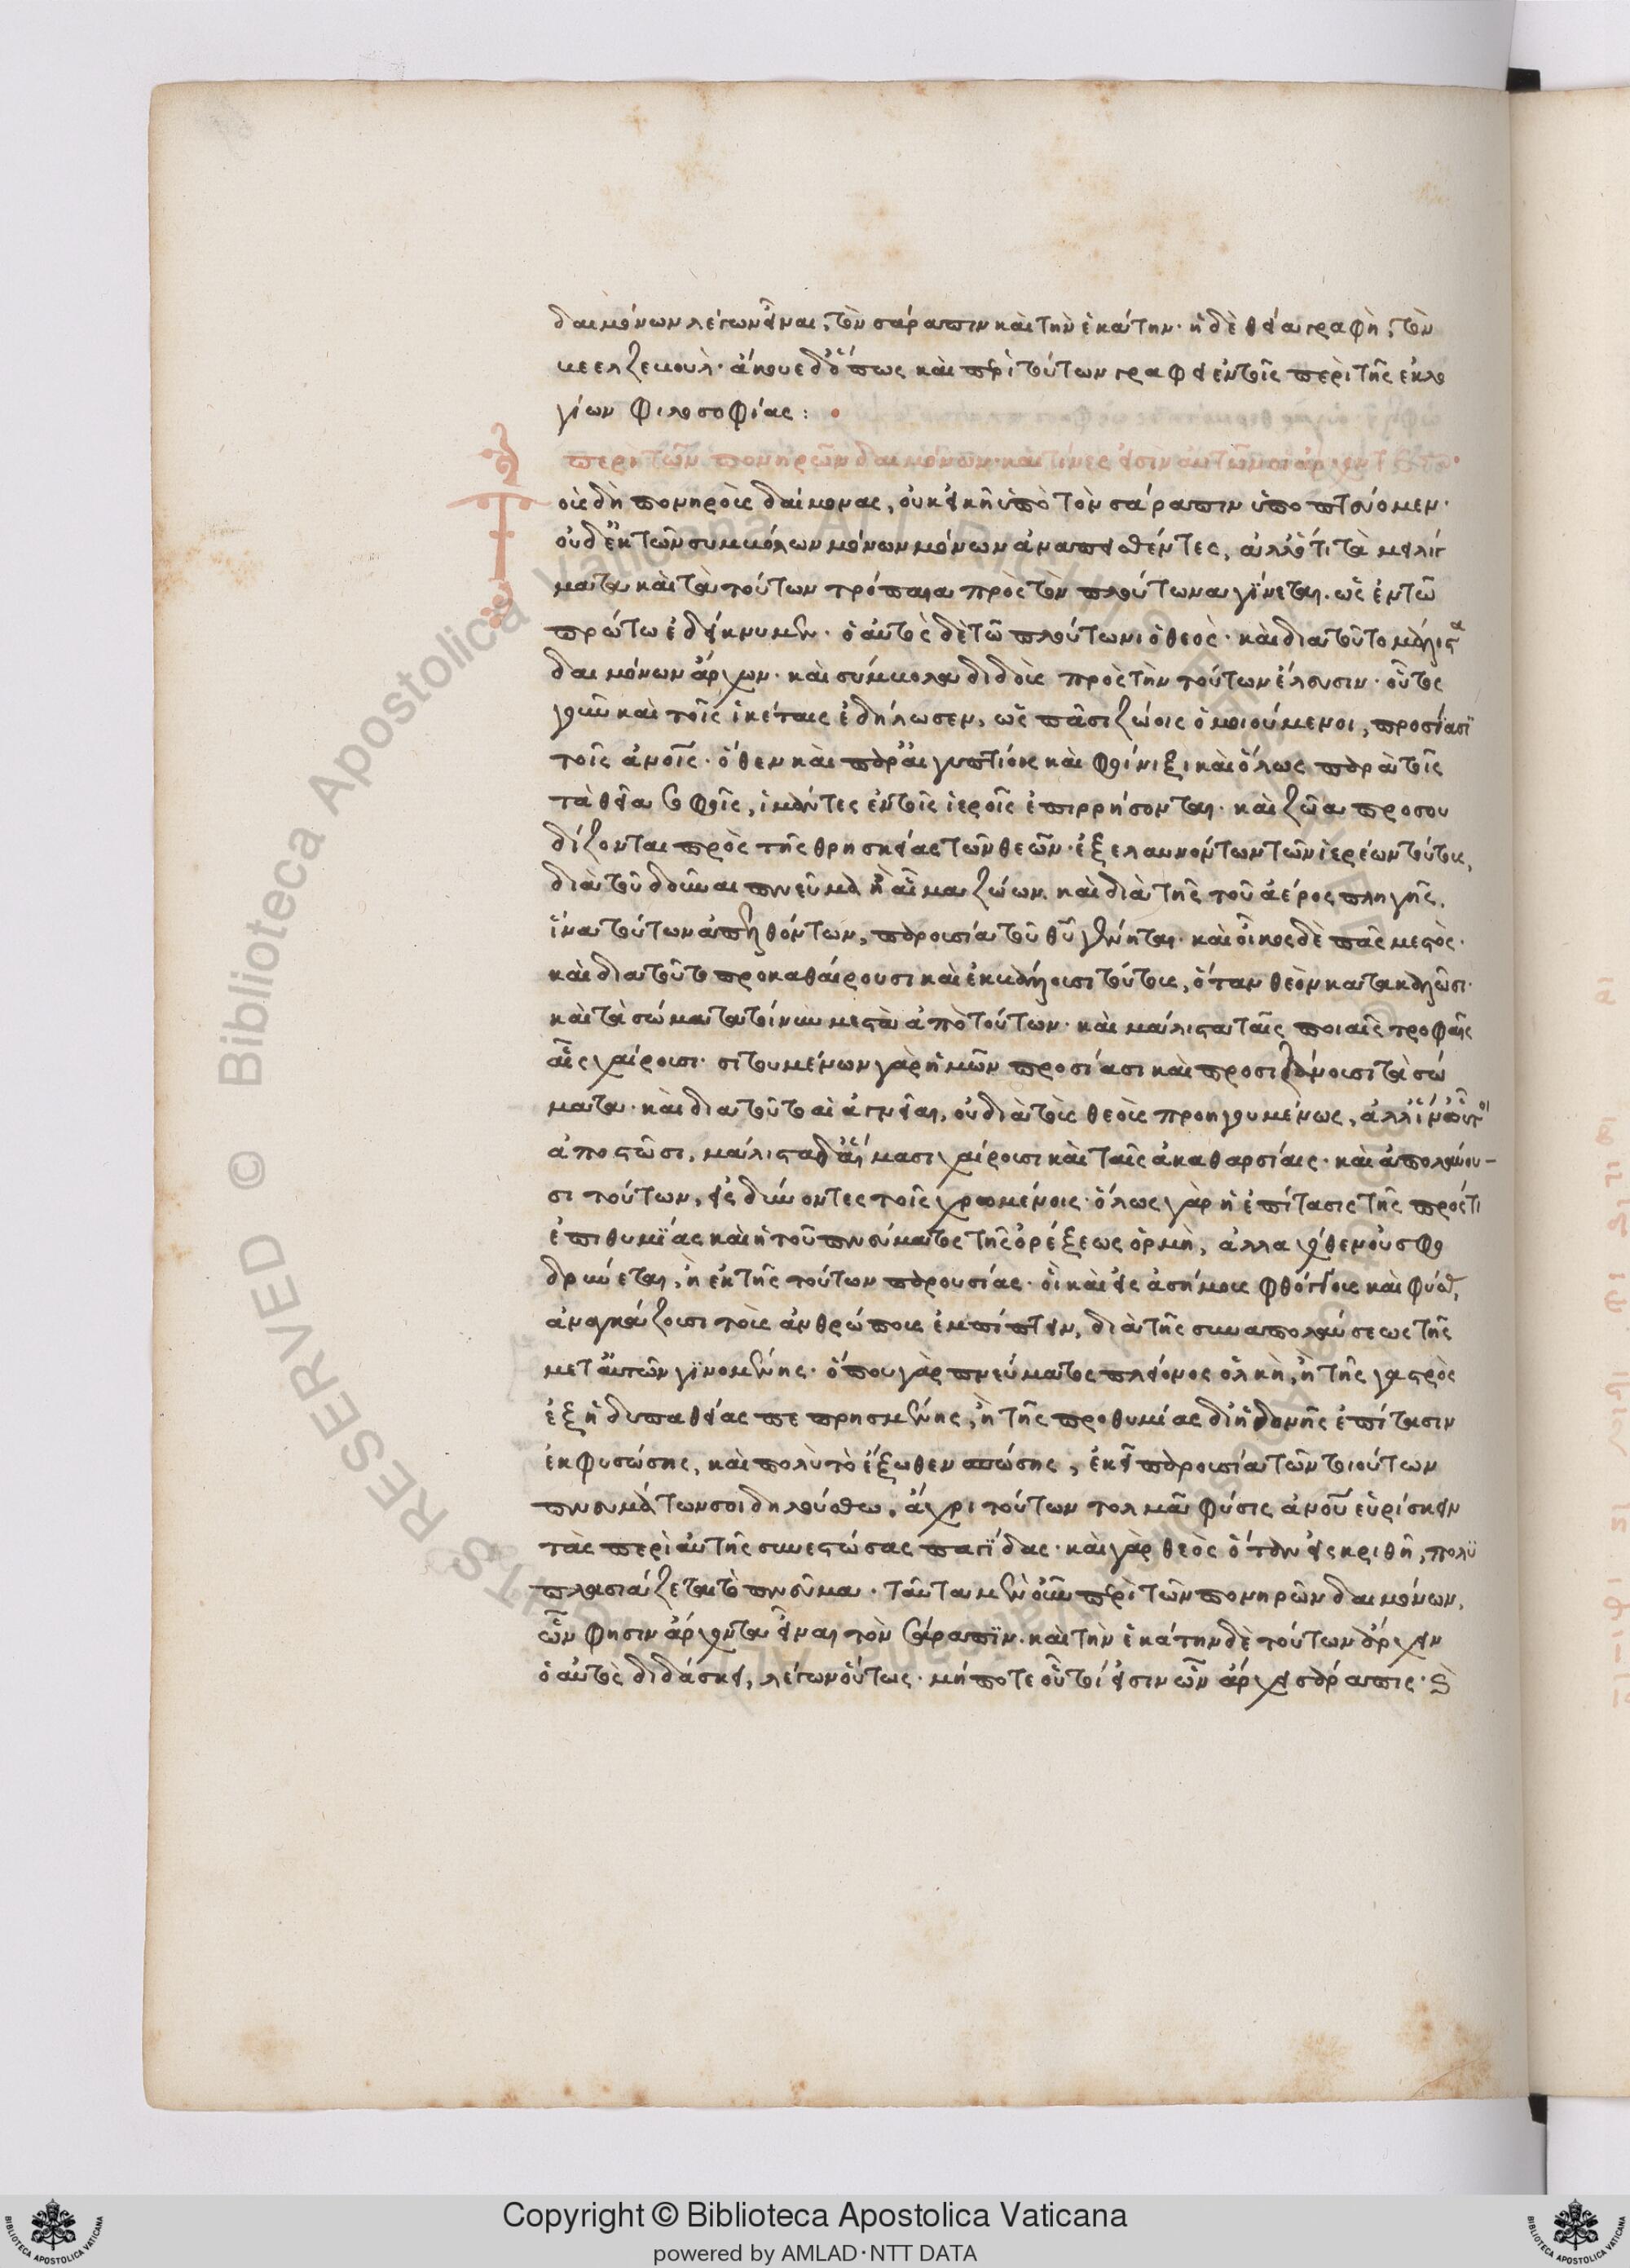 δαιμόνων λέγων εἶναι, τὸν σάραπιν καὶ τὴν ἑκάτην· ἡ δὲ θεία γραφὴ, τὸν
βεελζεβούλ· ἄκουε δ' ὅπως καὶ περὶ τούτων γράφει ἐν τοῖς περὶ τῆς ἐκ λο
γίων φιλοσοφίας :
περὶ τῶν πονηρῶν δαιμόνων· καὶ τίνες εἰσὶν αὐτῶν οἱ ἄρχοντ
οὓς δὴ πονηροὺς δαίμονας, οὐκ εἰκῆ ὑπὸ τὸν σάραπιν ὑποπτεύομεν·
οὐδ' ἐκ τῶν συμβόλων μόνων μόνων ἀναπεισθέντες, ἀλλ' ὅτι τὰ μειλίγ
ματα καὶ τὰ τούτων τρόπαια πρὸς τὸν πλούτωνα γίνεται. ὡς ἐν τῶ
πρώτω ἐδείκνυμεν· ὁ αὐτὸς δὲ τῶ πλούτωνι ὁ θεὸς· καὶ διατοῦτο μάλιστα
δαιμόνων ἄρχων· καὶ σύμβολα διδοὺς πρὸς τὴν τούτων ἔλευσιν· οὗτος
γοῦν καὶ τοῖς ἱκέταις ἐδήλωσεν, ὡς πᾶσι ζώοις ὁμοιούμενοι, προσίασϊ
τοῖς ἀνοῖς· ὅθεν καὶ παρ' αἰγυπτίοις καὶ φοίνιξι καὶ ὅλως παρὰ τοῖς
τὰ θεῖα σοφοῖς, ἱμάντες ἐν τοῖς ἱεροῖς ἐπιρρήσονται· καὶ ζῶα προσου
δίζονται πρὸς τῆς θρησκείας τῶν θεῶν· ἐξελαυνόντων τῶν ἱερέων τούτους,
διὰ τοῦ δοῦναι πνεῦμα ἢ αἷμα ζώων· καὶ διὰ τῆς τοῦ ἀέρος πληγῆς,
ἵνα τούτων ἀπελθόντων, παρουσία τοῦ θυ γένηται· καὶ οἶκος δὲ πᾶς μεστός·
καὶ διατοῦτο προκαθαίρουσι καὶ ἐκβάλλουσι τούτους, ὅταν θεὸν κατακαλῶσι·
καὶ τὰ σώματα τοίνυν μεστὰ ἀπὸ τούτων· καὶ μάλιστα ταῖς ποιαῖς τροφαῖς
αἷς χαίρουσι· σιτουμένων γὰρ ἡμῶν προσίασι καὶ προσιζάνουσι τὰ σώ
ματα· καὶ διατοῦτο αἱ ἁγνεῖαι, οὐ διὰ τοὺς θεοὺς προηγουμένως, ἀλλ' ἵν' οὗτοι
ἀποστῶσι, μάλιστα δ' αἵμασι χαίρουσι καὶ ταῖς ἀκαθαρσίαις· καὶ ἀπολαύου-
σι τούτων, εἰσδύνοντες τοῖς χρωμένοις· ὅλως γὰρ ἡ ἐπίτασις τῆς πρός τι
ἐπιθυμίας καὶ ἡ τοῦ πνεύματος τῆς ὀρέξεως ὁρμὴ, ἀλλαχόθεν οὐ σφο
δρύνεται, ἢ ἐκ τῆς τούτων παρουσίας· οἳ καὶ εἰς ἀσήμους φθόγγους καὶ φύσ,
ἀναγκάζουσι τοὺς ἀνθρώπους ἐμπίπτειν, διὰ τῆς συναπολαύσεως τῆς
μετ' αὐτῶν γϊνομένης· ὅπου γὰρ πνεύματος πλείονος ὁλκὴ, ἢ τῆς γαστρὸς
ἐξ ἡδυπαθείας πεπρησμένης, ἢ τῆς προθυμίας δι' ἡδονῆς ἐπίτασιν
ἐκφυσώσης, καὶ πολὺ τὸ ἔξωθεν σπώσης, ἐκεῖ παρουσία τῶν τοιούτων
πνευμάτων σοι δηλούσθω. ἄχρι τούτων τολμᾶ φύσις ἀνοῦ εὑρίσκειν
τὰς περὶ αὐτῆς συνεστώσας παγϊδας· καὶ γὰρ θεὸς ὅταν εἰσκριθῆ, πολϋ
πλασιάζεται τὸ πνεῦμα· ταῦτα μὲν οὖν περὶ τῶν πονηρῶν δαιμόνων,
ὧν φησιν ἄρχοντα εἶναι τὸν σάραπϊν· καὶ τὴν ἑκάτην δὲ τούτων ἄρχειν
ὁ αὐτὸς διδάσκει, λέγων οὕτως· μήποτε οὗτοί εἰσιν ὧν ἄρχει σάραπις· ϗ